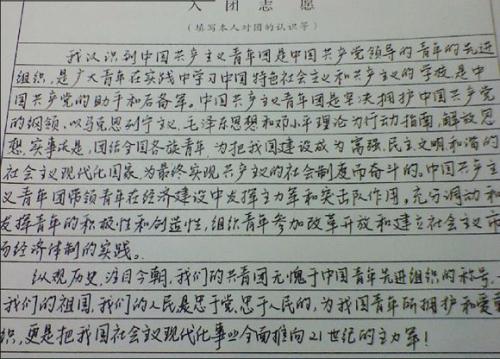 入团志愿
（填写本人对团的认识等）
我认识到中国共产主义青年团是中国共产党领导的青年的先进
组织，是广大青年在实践中学习中国特色社会主义和共产主义的学校，是中
国共产党的助手和后备军。中国共产主义青年团是坚决拥护中国共产党
的纲领，以马克思列宁主义，毛泽东思想和邓小平理论为行动指南，解放思
想，实事求是，团结全国各族青年，为把我国建设成为富强，民主文明和谐的
社会主义现代化国家，为最终实现共产主义的社会制度而奋斗的。中国共产主
义青年团带领青年在经济建设中发挥主力军和突击队作用，充分调动和
发挥青年的积极性和创造性，组织青年参加改革开放和建立社会主义市
场经济体制的实践。
纵观历史，注目今朝，我们的共青团无愧于中国青年先进组织的称号，
我们的祖国，我们的人民是忠于党，忠于人民的，为我国青年所拥护和爱
织，更是把我国社会主义现代化事业全面推向21世纪的主力军！